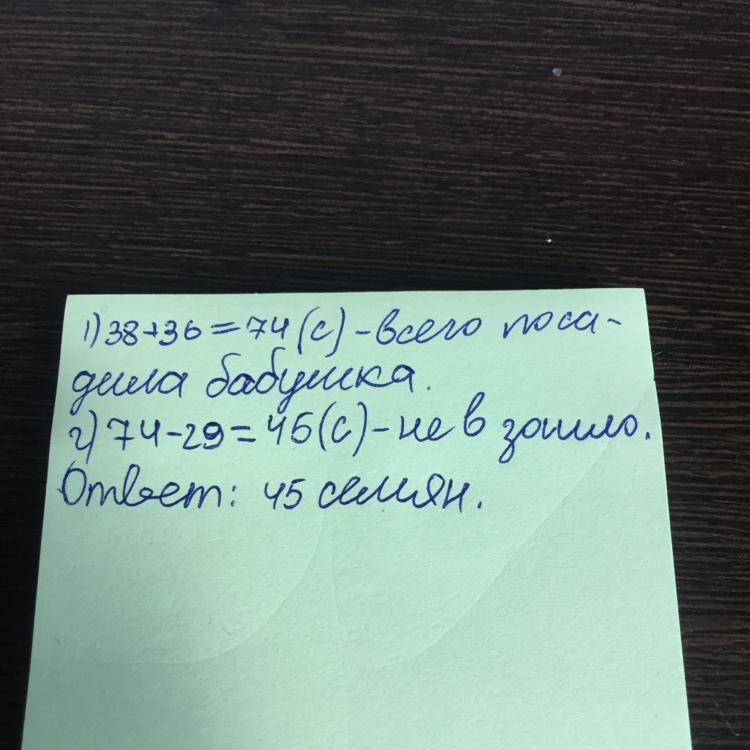 1) 38+36=74(с)-всего поса-
дила бабушка.
2) 74-29=45(с)-не в зошло.
Ответ: 45 семян.